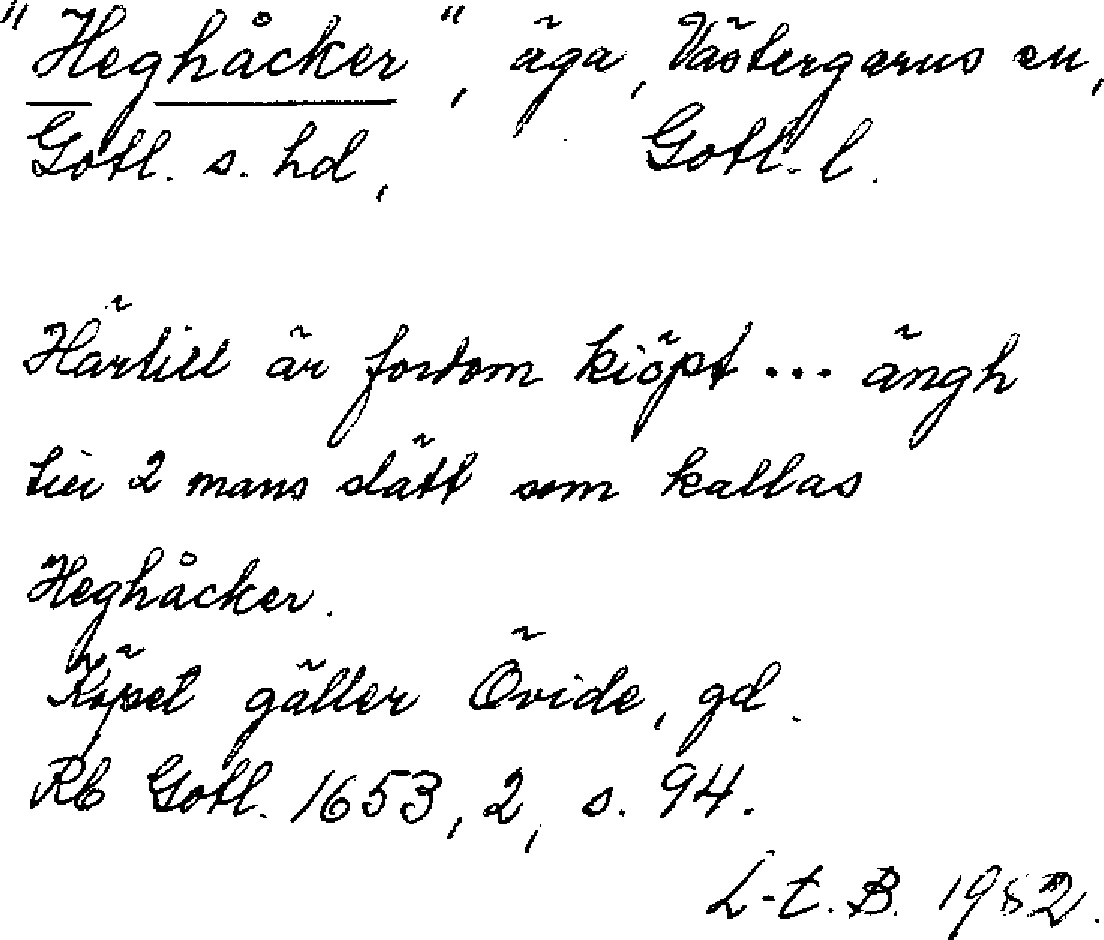 "Heghåcker", äga, Västergarns sn,
Gotl. s. hd, Gotl. l.
Härtill är fordom kiöpt ... ängh
till 2 mans slätt som kallas
Heghåcker.
Köpet gäller Övide, gd.
Rb Gotl. 1653, 2, s. 94.
L-t. B. 1982.